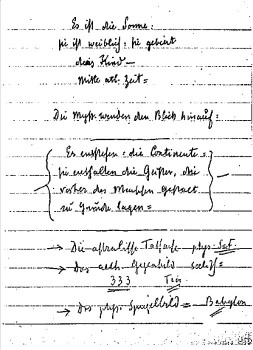 Es ist die Sonne:
sie ist weiblich: sie gebiert
das Kind —
Mitte atl. Zeit =
Die Myst. wenden den Blick hinauf:
Es entstehen: die Continente =
sie entfallen die Geister, die
vorher des Menschen
zu Grunde lagen =
→ Die astralische Tatsache phys. Sat.
→ Das aeth. Gegenbild
333
→ Das phys. Spiegelbild = Babylon